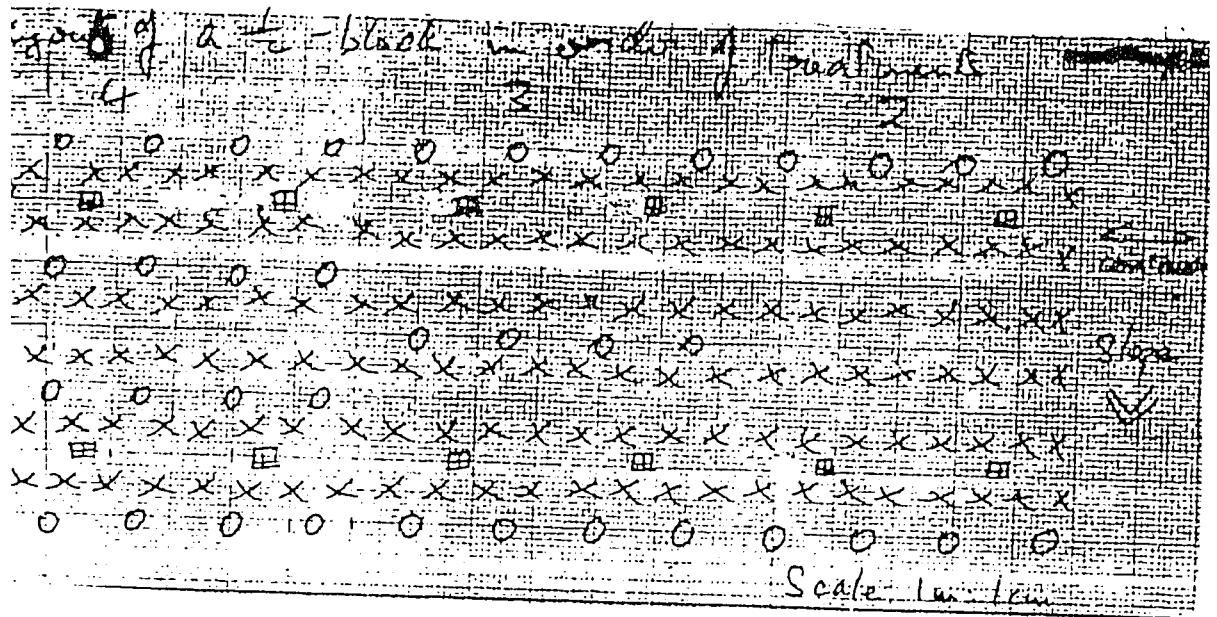 of a 1/2 - block in order of treatments
4 3 2
continue
Slope
Scale 1m - 1cm